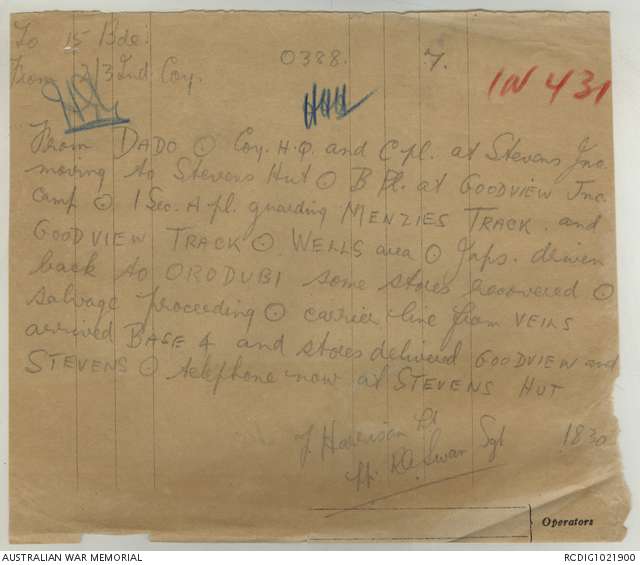 To 15 Bde.
0388. 7.
From 2/3 Ind Coy.
IN 431
From DADO ⊙ Coy. H.Q. and C pl. at Stevens Jnc.
moving to Stevens Hut ⊙ B Pl. at GOODVIEW Jnc.
camp ⊙ 1 Sec. A pl. guarding MENZIES TRACK. and
GOODVIEW TRACK ⊙ WELLS area ⊙ Japs. driven
back to ORODUBI some stores recovered ⊙
salvage proceeding ⊙ carrier line from
arrived BASE 4 and stores delivered GOODVIEW and
STEVENS ⊙ telephone now at STEVENS HUT
J Harrison Lt
Swan Sgt 1830
Operators
AUSTRALIAN WAR MEMORIAL
RCDIG1021900